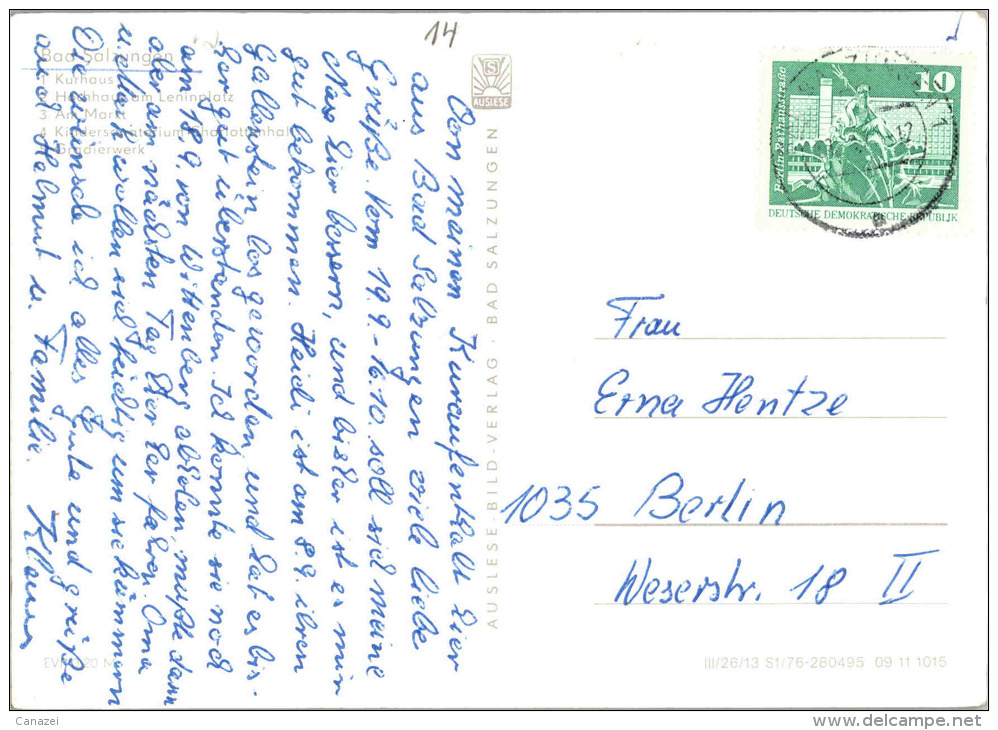 14
Bad Salzungen
1 Kurhaus
2 Hochhaus am Leninplatz
3 Am Markt
4 Kindersanatorium Charlottenhall
5 Gradierwerk
AUSLESE
Von meinen Kuraufenthalt hier
aus Bad Salzungen viele liebe
Grüße. Vom 19.9. - 16.10. soll sich meine
Nase hier bessern, und bisher ist es mir
gut bekommen. Heidi ist am 8.9. ihren
Gallenstein losgeworden und hat es bis-
her gut überstanden. Ich konnte sie noch
am 18.9. von Wittenberg abholen, mußte dann
aber am nächsten Tag hier her fahren. Oma
u. Mutti wollen sich fleißig um sie kümmern
Dir wünsche ich alles Gute und grüße
auch Helmut u. Familie.
Klaus
AUSLESE-BILD-VERLAG · BAD SALZUNGEN
10
Berlin-Rathausstraße
DEUTSCHE DEMOKRATISCHE REPUBLIK
Frau
Erna Hentze
1035 Berlin
Weserstr. 18 II
III/26/13 S1/76-280495 09 11 1015
Canazei
www.delcampe.net